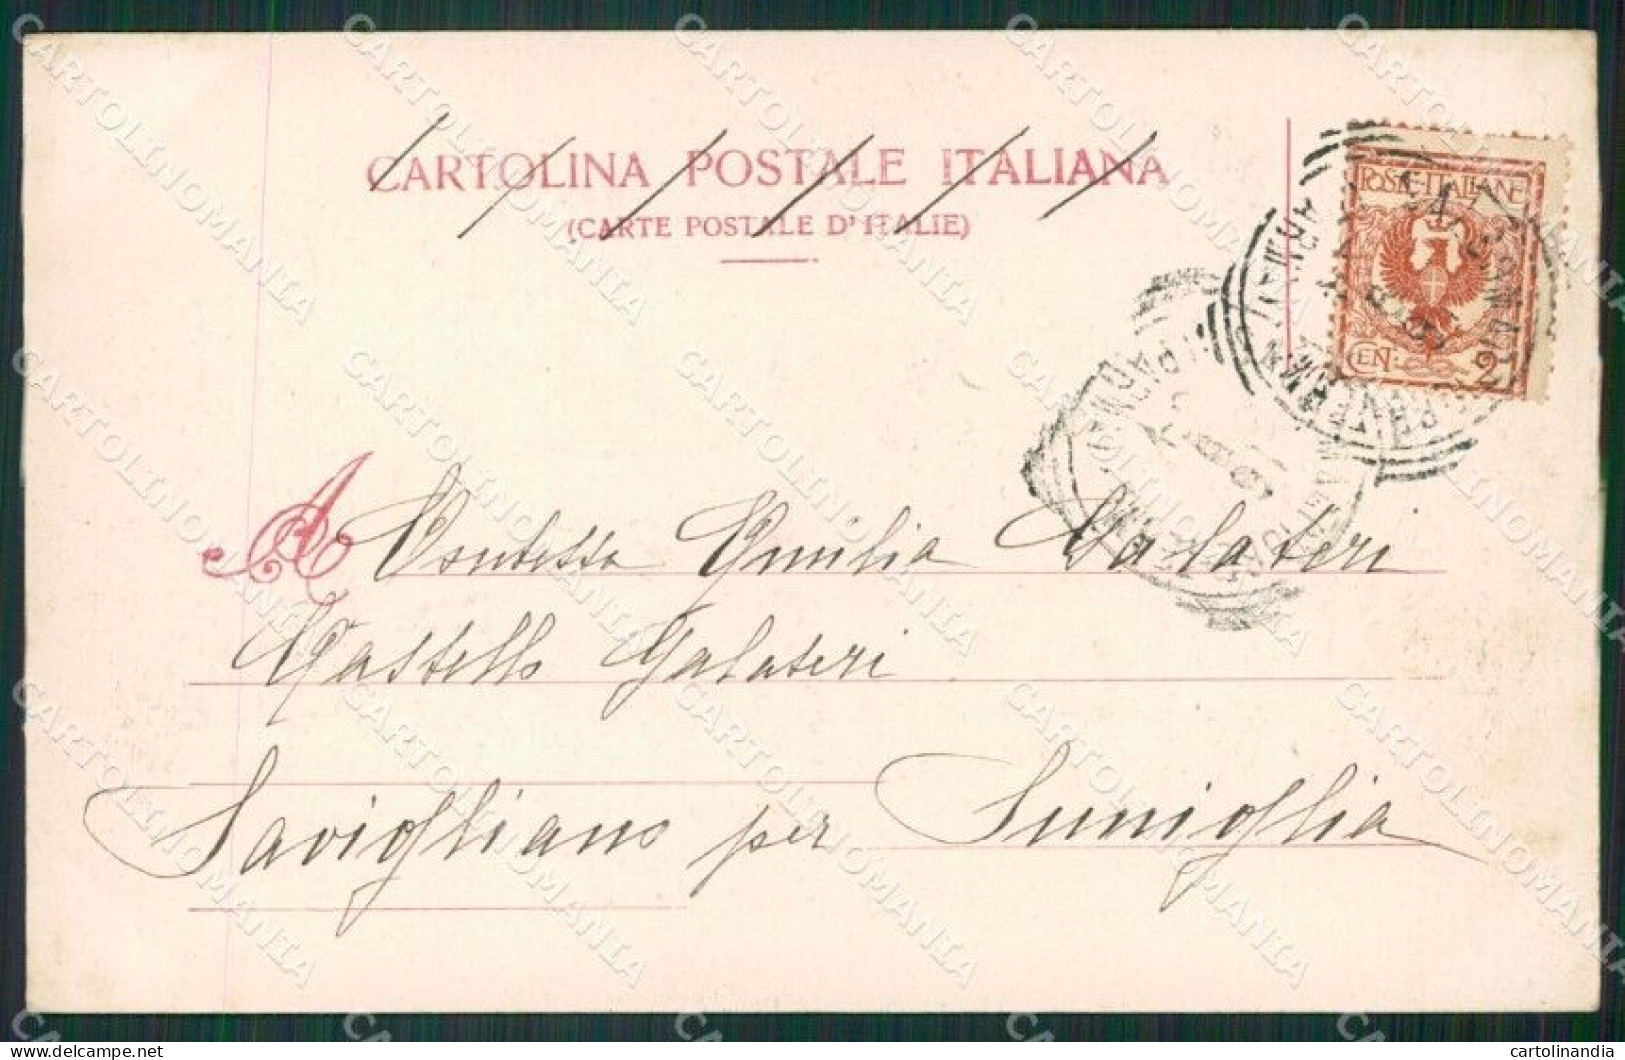 CARTOLINA POSTALE ITALIANA
(CARTE POSTALE D'ITALIE)
POSTE·ITALIANE
CEN: 2
A Contessa Emilia Galateri
Castello Galateri
Savigliano per Suniglia
CARTOLINOMANIA
cartolinandia